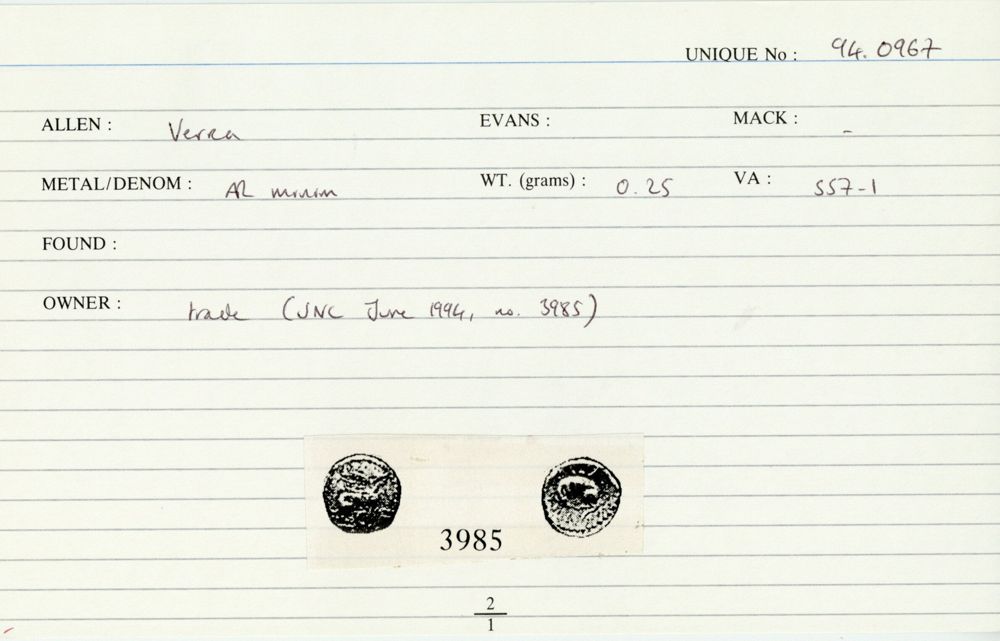 UNIQUE No : 94. 0967
ALLEN : Verica EVANS : MACK : -
METAL/DENOM : AR minim WT. (grams) : 0.25 VA : 557-1
FOUND :
OWNER : trade (SNC June 1994, no. 3985)
3985
2
1